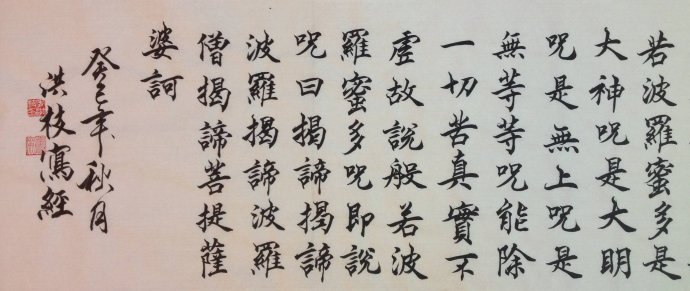 若波羅蜜多是
大神呪是大明
呪是無上呪是
無等等呪能除
一切苦真實不
虛故說般若波
羅蜜多呪即說
呪曰揭諦揭諦
波羅揭諦波羅
僧揭諦菩提薩
婆訶
癸巳年秋月
洪枝寫經